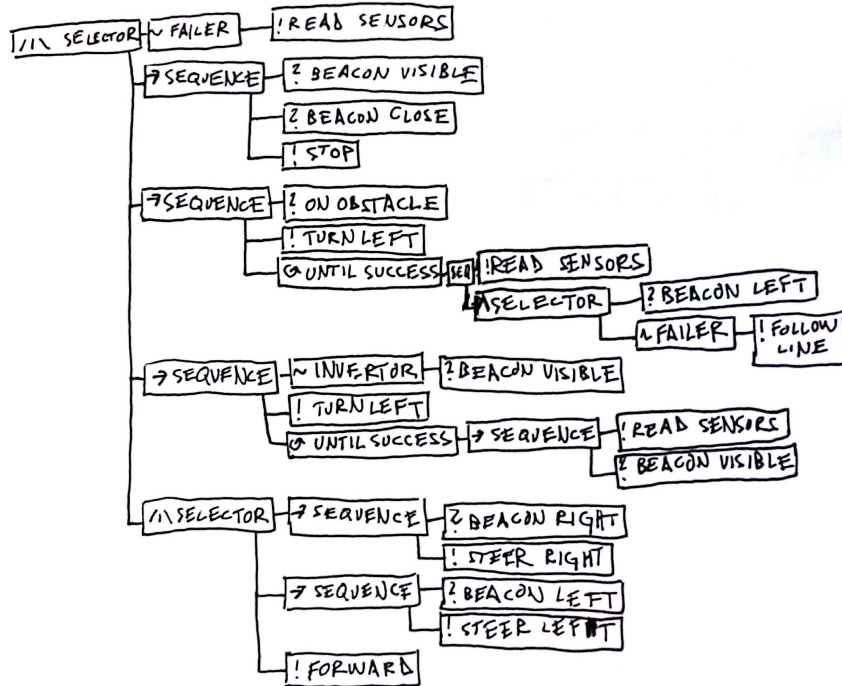 /|\ SELECTOR ~ FAILER ! READ SENSORS
→ SEQUENCE ? BEACON VISIBLE
? BEACON CLOSE
! STOP
→ SEQUENCE ? ON OBSTACLE
! TURN LEFT
↺ UNTIL SUCCESS SEQ ! READ SENSORS
/|\ SELECTOR ? BEACON LEFT
~ FAILER ! FOLLOW
LINE
→ SEQUENCE ~ INVERTOR ? BEACON VISIBLE
! TURN LEFT
↺ UNTIL SUCCESS → SEQUENCE ! READ SENSORS
? BEACON VISIBLE
/|\ SELECTOR → SEQUENCE ? BEACON RIGHT
! STEER RIGHT
→ SEQUENCE ? BEACON LEFT
! STEER LEFT
! FORWARD